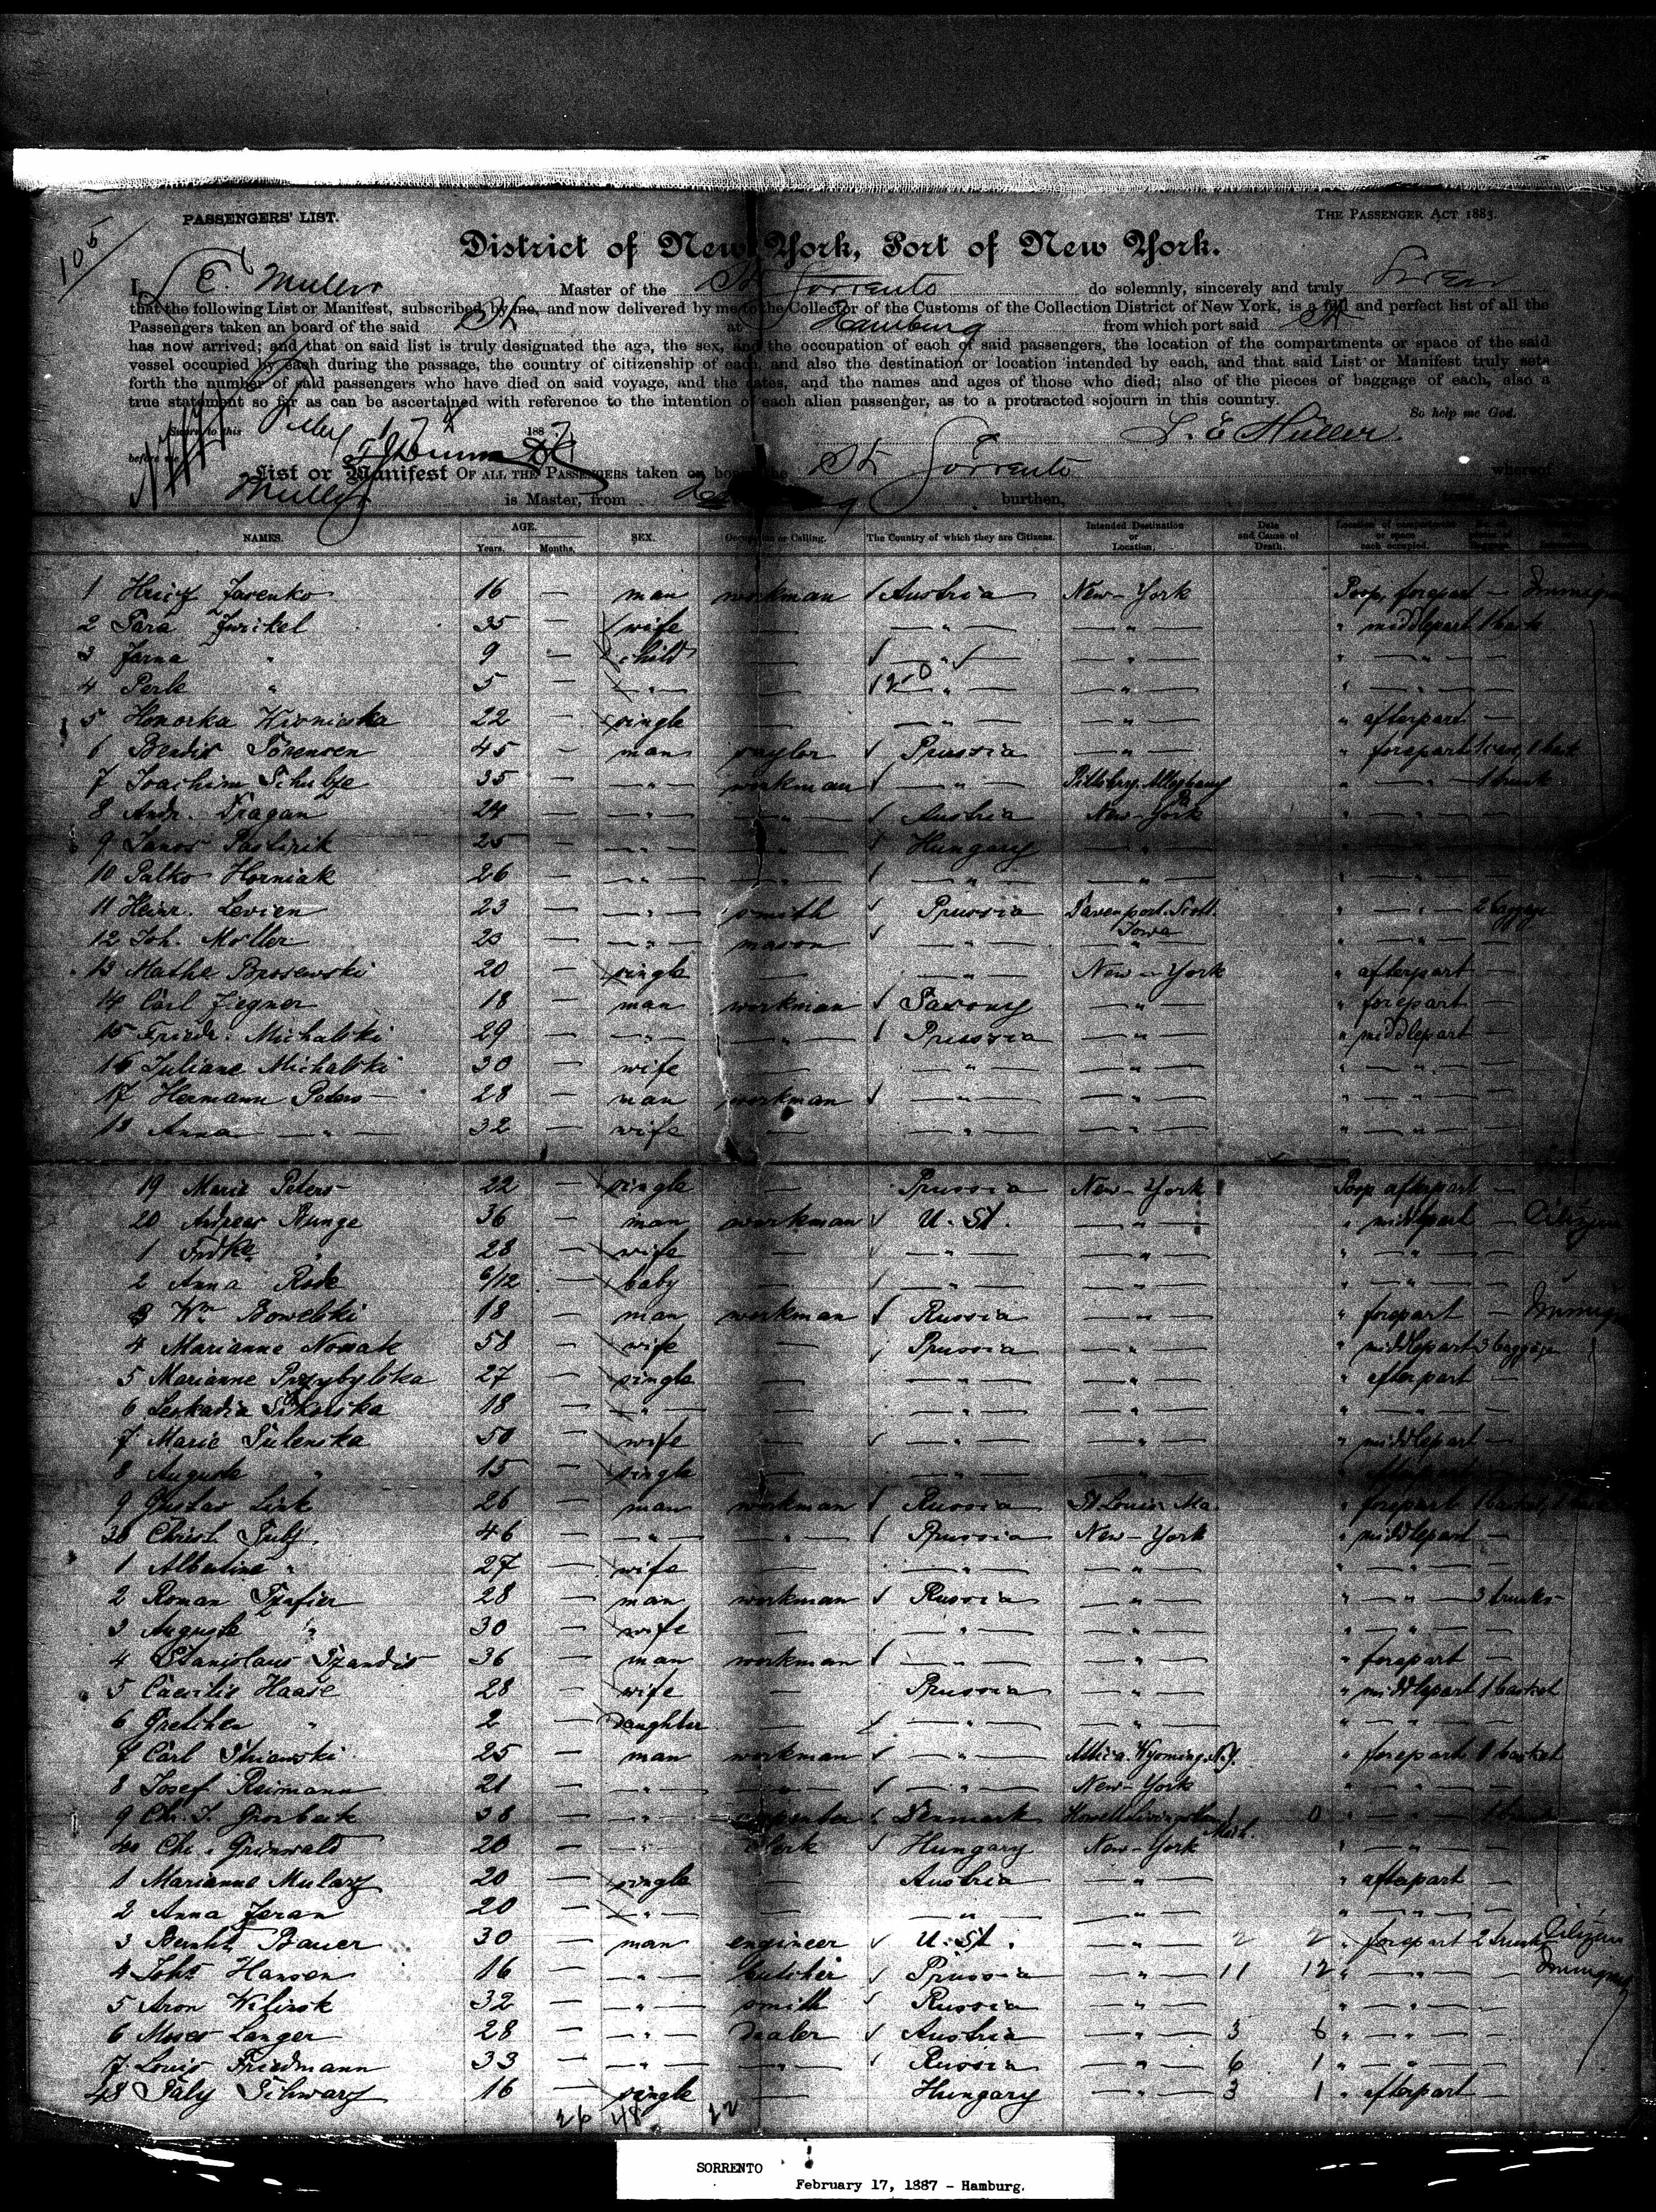 PASSENGERS' LIST.
THE PASSENGER ACT 1883.
District of New York, Port of New York.
I, E. Muller Master of the Str Sorrento do solemnly, sincerely and truly Swear
that the following List or Manifest, subscribed by me, and now delivered by me to the Collector of the Customs of the Collection District of New York, is a full and perfect list of all the
Passengers taken on board of the said Str at Hamburg from which port said Str
has now arrived; and that on said list is truly designated the age, the sex, and the occupation of each of said passengers, the location of the compartments or space of the said
vessel occupied by each during the passage, the country of citizenship of each, and also the destination or location intended by each, and that said List or Manifest truly sets
forth the number of said passengers who have died on said voyage, and the dates, and the names and ages of those who died; also of the pieces of baggage of each, also a
true statement so far as can be ascertained with reference to the intention of each alien passenger, as to a protracted sojourn in this country.
So help me God.
Sworn to this 17 1887 L. E. Müller.
before me
List or Manifest OF ALL THE PASSENGERS taken on board the Str Sorrento whereof
Muller is Master, from burthen,
NAMES. AGE. Years. Months. SEX. Occupation or Calling. The Country of which they are Citizens. Intended Destination or Location. Date and Cause of Death. Location of compartment or space each occupied.
1 Jasenko 16 — man workman Austria New-York Poop, forepart — Immigrant
2 Sara 35 — wife — " — " " middlepart
3 " 9 — child — " — " " — " —
4 Perle " 5 — " — " — " " — " —
5 Honorka 22 — single — " — " " afterpart —
6 Bendix Sörensen 45 — man saylor Prussia — " " forepart
7 Joachim Schulze 35 — " workman — " Pittsbrg. Alleghany Pa " — " — 1 trunk
8 Andr. Dragan 24 — " " Austria New-York " — " —
9 Janos 25 — " " Hungary — "
10 Palko Horniak 26 — " " — " — " " — " —
11 Heinr. Levien 23 — " smith Prussia Davenport. Scott. Iowa " — " — 2 baggage
12 Joh. Möller 23 — " mason — " — " " — " —
13 Mathe Brosewski 20 — single — New-York " afterpart —
14 Carl Zegner 18 — man workman Saxony — " " forepart —
15 Friedr. Michalski 29 — " " Prussia — " " middlepart —
16 Juliane Michalski 30 — wife — " — " " — " —
17 Hermann Peters 28 — man workman — " — " " — " —
18 Anna — " — 32 — wife — " — " " — " —
19 Marie Peters 22 — single — Prussia New-York Poop afterpart —
20 Andreas Runge 36 — man workman U. St. — " " middlepart — Citizen
1 " 28 — wife — " — " " — " —
2 Anna Rode 6/12 — baby — " — " " — " —
3 Wm Bowelski 18 — man workman Russia — " " forepart — Immigrant
4 Marianne Nowak 58 — wife — Prussia — " " middlepart 3 baggage
5 Marianne Przybylska 27 — single — " — " " afterpart —
6 Leokadia Sikorska 18 — " — " — " " — " —
7 Marie Sulenska 50 — wife — " — " " middlepart —
8 Auguste " 15 — single — " — "
9 Gustav Link 26 — man workman Russia St Louis Mo. " forepart
30 Christ. 46 — " " Prussia New-York " middlepart —
1 Albertine " 27 — wife — " — " " — " —
2 Roman 28 — man workman Russia — " " — " — 3 trunks
3 Auguste " 30 — wife — " — " " — " —
4 Stanislaus 36 — man workman — " — " " forepart —
5 Caecilie Haase 28 — wife — Prussia — " " middlepart 1 basket
6 Gretchen " 2 — daughter — " — " " — " —
7 Carl 25 — man workman — " Attica. Wyoming. N.Y. " forepart 1 basket
8 Josef Reimann 21 — " " — " New-York " — " —
9 Chr. J. Gronbeck 38 — " carpenter Denmark Howell Livingston Mich. 0 " — " —
40 Chr. Grünwald 20 — " clerk Hungary New-York " — " —
1 Marianne Mularz 20 — single — Austria — " " afterpart —
2 Anna Zoran 20 — " — " — " " — " —
3 Bernht. Bauer 30 — man engineer U. St. — " 2 2 " forepart 2 trunks Citizen
4 Johs Hansen 16 — " butcher Prussia — " 11 12 " — " — Immigrant
5 Aron 32 — " smith Russia — " " — " —
6 Moses Langer 28 — " dealer Austria — " 3 6 " — " —
7 Louis Friedmann 33 — " " Russia — " 6 1 " — " —
48 Saly Schwarz 16 — single — Hungary — " 3 1 " afterpart —
26 48 22
SORRENTO
February 17, 1887 - Hamburg.